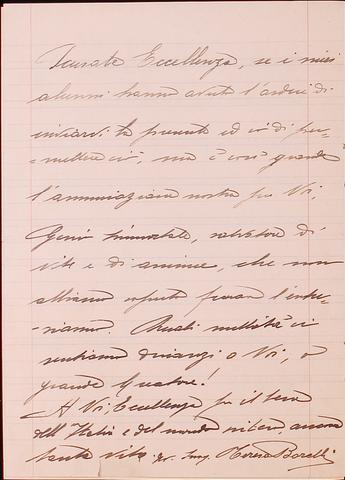 Scusate Eccellenza, se i miei
alunni hanno avuto l'ardire di
inviarvi la presente ed io di per-
=mettere ciò, ma è così grande
l'ammirazione nostra per Voi,
Genio immortale, salvatore di
vite e di anime, che non
abbiamo saputo frenare l'entu-
siasmo. Quali nullità ci
sentiamo dinanzi a Voi, o
grande Creatore!
A Voi, Eccellenza per il bene
dell'Italia e del mondo intero ancora
tanta vita. Teresa Borelli